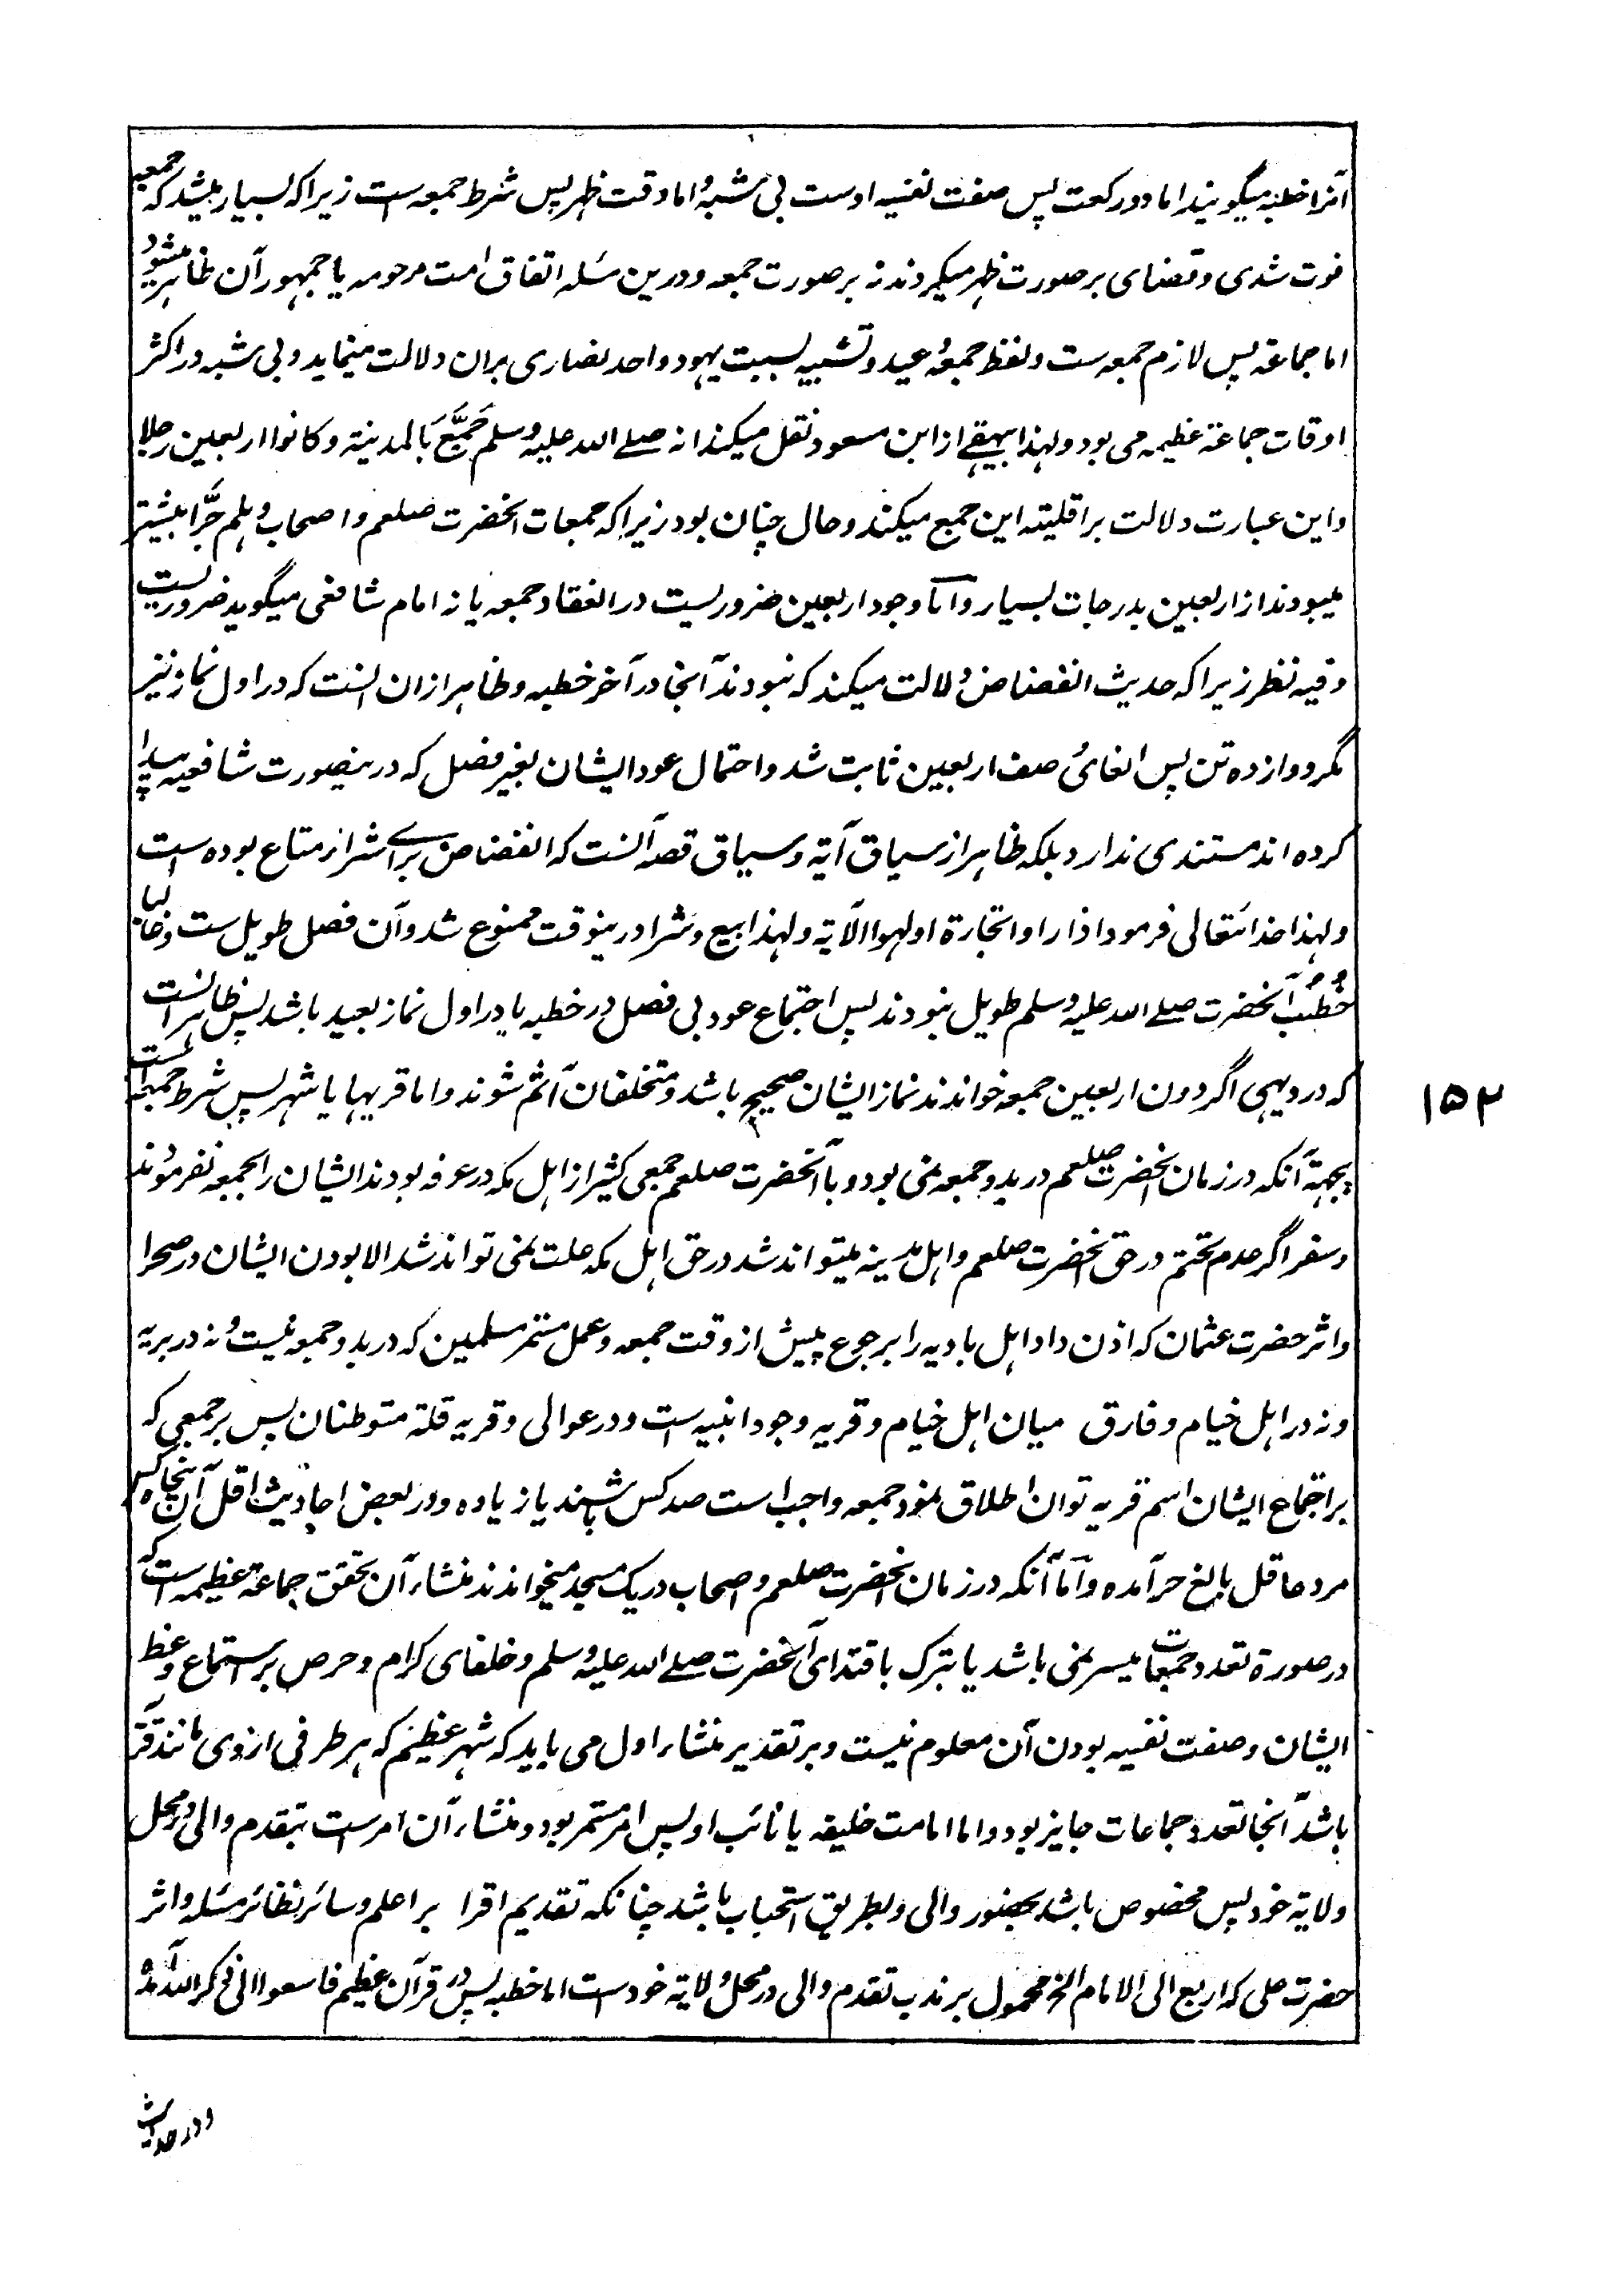 آنرا خطبه میگویند اما دو رکعت پس صفت نفسیه اوست بی شبه و اما وقت ظهر پس شرط جمعه است زیرا که بسیار میشد که جمعه
فوت شدی و قضای بر صورت ظهر میکردند نه بر صورت جمعه و درین مسئله اتفاق امت مرحومه یا جمهور آن ظاهر میشود
اما جماعة پس لازم جمعه ست و لفظ جمعه و عید و تشبیه بسبت یهود و احد نصاری بران دلالت مینماید و بی شبه در اکثر
اوقات جماعة عظیمه می بود و لهذا بیهقے از ابن مسعود نقل میکند انه صلے الله علیه وسلم جَمَّعَ بالمدینة وکانوا اربعین رجلا
و این عبارت دلالت بر اقلیته این جمع میکند و حال چنان بود زیرا که جمعات آنحضرت صلعم و اصحاب و هلم جرًّا بیشتر
میبودند از اربعین بدرجات بسیار و اما وجود اربعین ضروریست در انعقاد جمعه یا نه امام شافعی میگوید ضروریست
وفیه نظر زیرا که حدیث انفضاض دلالت میکند که نبودند آنجا در آخر خطبه و ظاهر از ان انست که در اول نماز نیز
مگر دوازده تن پس الغائ صف اربعین ثابت شد و احتمال عود ایشان بغیر فصل که درینصورت شافعیه پیدا
کرده اند مستندی ندارد بلکه ظاهر از سیاق آیة و سیاق قصه آنست که انفضاض براے شراز متاع بوده است
و لهذا خدا تعالی فرمود اذا راوا تجارة او لهوا الآیة و لهذا بیع و شرا درینوقت ممنوع شد و آن فصل طویل ست و غالبا
خُطَبِ آنحضرت صلے الله علیه وسلم طویل نبودند پس اجتماع عود بی فصل در خطبه یا در اول نماز بعید باشد پس ظاهر آنست
که در دیهی اگر دون اربعین جمعه خوانند نماز ایشان صحیح باشد و متخلفان آثم شوند و اما قریها یا شهر پس شرط جمعه است
بجهة آنکه در زمان آنحضرت صلعم در بدو جمعه نمی بود و با آنحضرت صلعم جمعی کثیر از اهل مکه در عرفه بودند ایشان را بجمعه نفرمودند
و سفر اگر عدم تحتم در حق آنحضرت صلعم و اهل مدینه میتواند شد در حق اهل مکه علت نمی تواند شد الا بودن ایشان در صحرا
و اثر حضرت عثمان که اذن داد اهل بادیه را برجوع پیش از وقت جمعه و عمل مستمر مسلمین که در بدو جمعه نیست و نه در بریه
و نه در اهل خیام و فارق میان اهل خیام و قریه وجود ابنیه است و در عوالی و قریه قلة متوطنان پس بر جمعی که
بر اجتماع ایشان اسم قریه توان اطلاق نمود جمعه واجب است صد کس باشند یا زیاده و در بعض احادیث اقل آن پنجاه کس
مرد عاقل بالغ حر آمده و اما آنکه در زمان آنحضرت صلعم و اصحاب در یک مسجد میخواندند منشاء آن تحقق جماعة عظیمه است که
در صورة تعدد جمعات میسر نمی باشد یا تبرک باقتدای آنحضرت صلے الله علیه وسلم و خلفای کرام و حرص بر استماع وعظ
ایشان و صفت نفسیه بودن آن معلوم نیست و بر تقدیر منشاء اول می باید که شهر عظیم که هر طرفی از وی مانند قریه
باشد آنجا تعدد جماعات جایز بود و اما امامت خلیفه یا نائب او پس امر مستمر بود و منشاء آن امرست بتقدم والی در محل
ولایة خود پس مخصوص باشد بحضور والی و بطریق استحباب باشد چنانکه تقدیم اقرا بر اعلم و سائر نظائر مسئله و اثر
حضرت علی که اربع الی الامام الخ محمول بر ندب تقدم والی در محل ولایة خودست اما خطبه پس در قرآن عظیم فاسعوا الی ذکر الله آمده
۱۵۲
و در حدیث